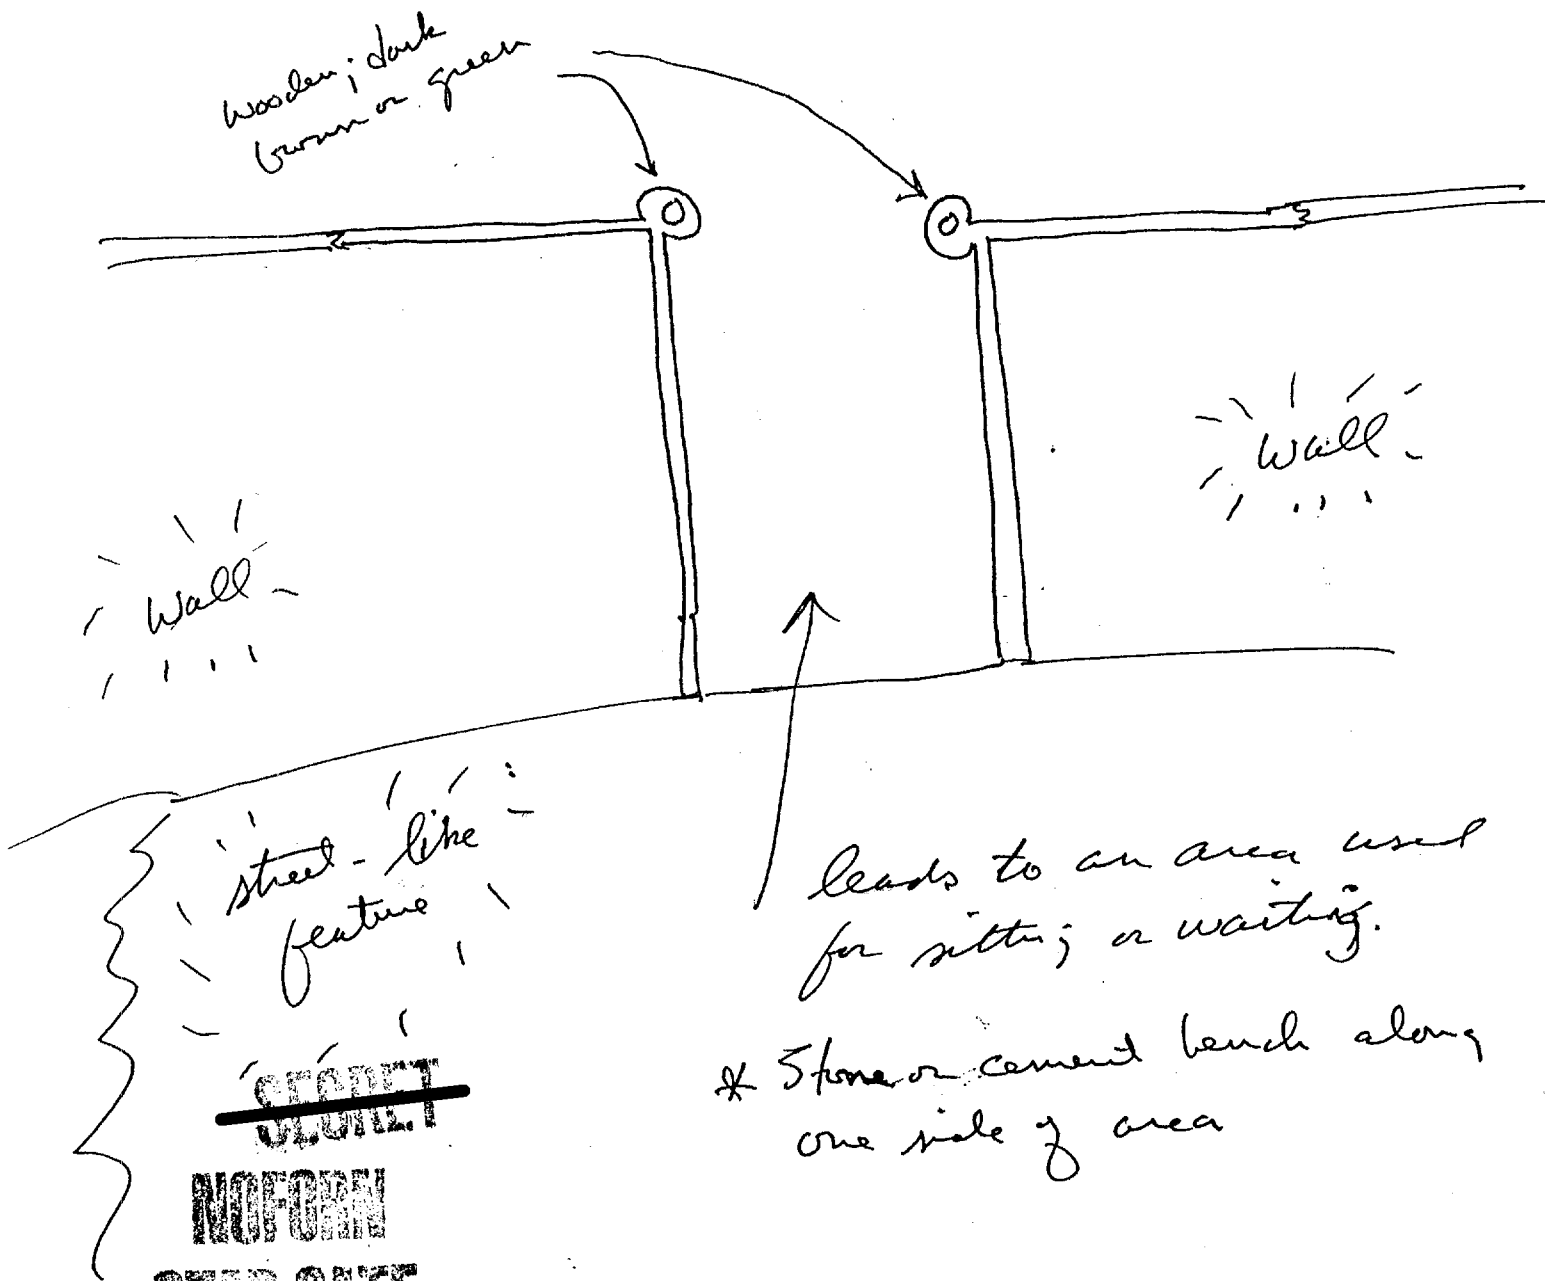 wooden; dark
brown or green
Wall
Wall
street-like
feature
leads to an area used
for sitting or waiting.
* Stone or cement bench along
one side of area
SECRET
NOFORN
STAR GATE